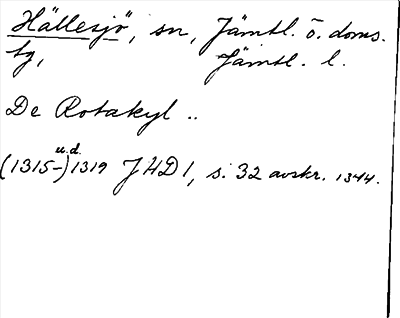 Hällesjö, sn, Jämtl. ö. doms.
tg, Jämtl. l.
De Rotakyl ..
(1315-)1319 u.d. JHD 1, s. 32 avskr. 1344.